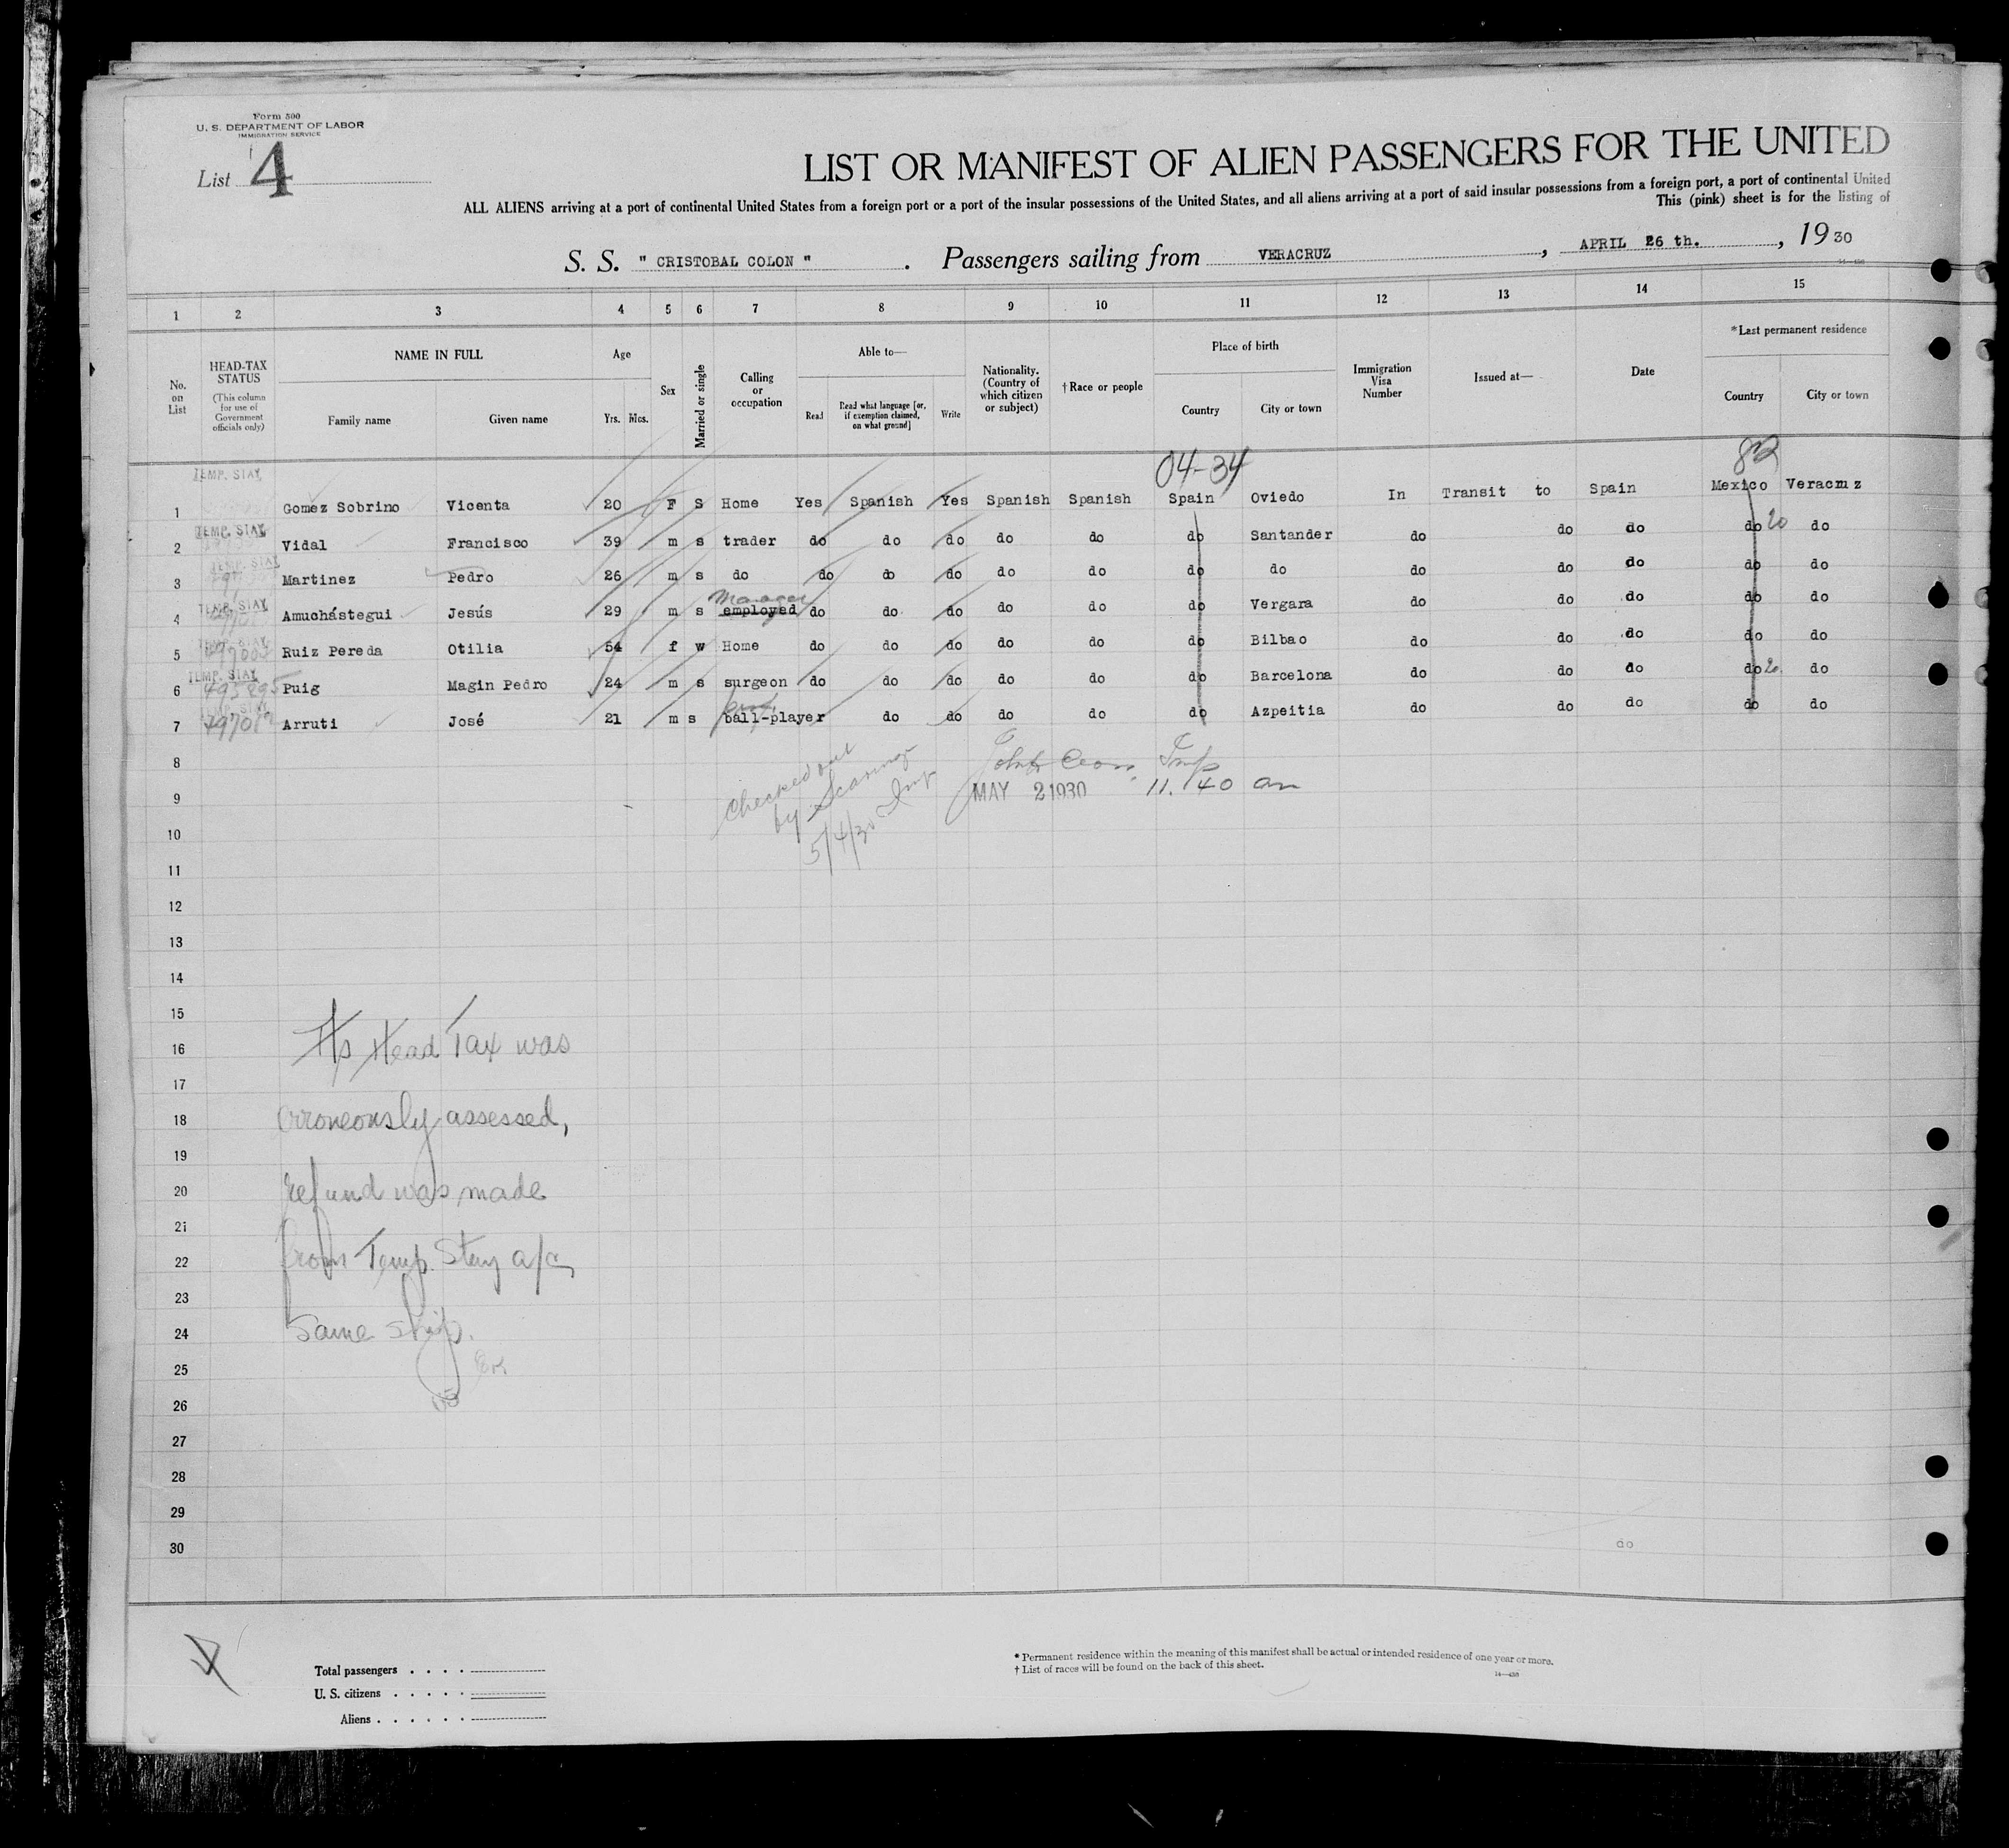 Form 500
U. S. DEPARTMENT OF LABOR
IMMIGRATION SERVICE
List 4
LIST OR MANIFEST OF ALIEN PASSENGERS FOR THE UNITED
ALL ALIENS arriving at a port of continental United States from a foreign port or a port of the insular possessions of the United States, and all aliens arriving at a port of said insular possessions from a foreign port, a port of continental United
This (pink) sheet is for the listing of
S. S. " CRISTOBAL COLON " . Passengers sailing from VERACRUZ , APRIL 26 th. , 19 30
1 2 3 4 5 6 7 8 9 10 11 12 13 14 15
No. on List
HEAD-TAX STATUS (This column for use of Government officials only)
NAME IN FULL
Family name Given name
Age
Yrs. Mos.
Sex
Married or single
Calling or occupation
Able to—
Read Read what language [or, if exemption claimed, on what ground] Write
Nationality. (Country of which citizen or subject)
† Race or people
Place of birth
Country City or town
Immigration Visa Number
Issued at—
Date
*Last permanent residence
Country City or town
04-34 82
TEMP. STAY
1 Gomez Sobrino Vicenta 20 F S Home Yes Spanish Yes Spanish Spanish Spain Oviedo In Transit to Spain Mexico Veracruz
TEMP. STAY
2 Vidal Francisco 39 m s trader do do do do do do Santander do do do do 20 do
TEMP. STAY
3 Martinez Pedro 26 m s do do do do do do do do do do do do do
TEMP. STAY Manager
4 Amuchástegui Jesús 29 m s employed do do do do do do Vergara do do do do do
TEMP. STAY
5 Ruiz Pereda Otilia 54 f w Home do do do do do do Bilbao do do do do do
TEMP. STAY
6 495895 Puig Magin Pedro 24 m s surgeon do do do do do do Barcelona do do do do 20 do
TEMP. STAY
7 Arruti José 21 m s ball-player do do do do do Azpeitia do do do do do
8
9 MAY 2 1930 11.40 am
10
11
12
13
14
15
16
17
18
19
20
21
22
23
24
25
26
27
28
29
30 do
checked out
by
5/4/30 Insp
Head Tax was
erroneously assessed,
refund was made
from Temp. Stay a/c
Same ship.
Total passengers . . . .
U. S. citizens . . . . .
Aliens . . . . . .
* Permanent residence within the meaning of this manifest shall be actual or intended residence of one year or more.
† List of races will be found on the back of this sheet.
14—430